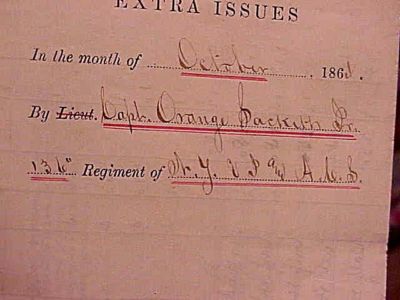 EXTRA ISSUES
In the month of October, 1863.
By Lieut. Capt. Orange Sackett Jr.
136" Regiment of N.Y. V & A.C.S.